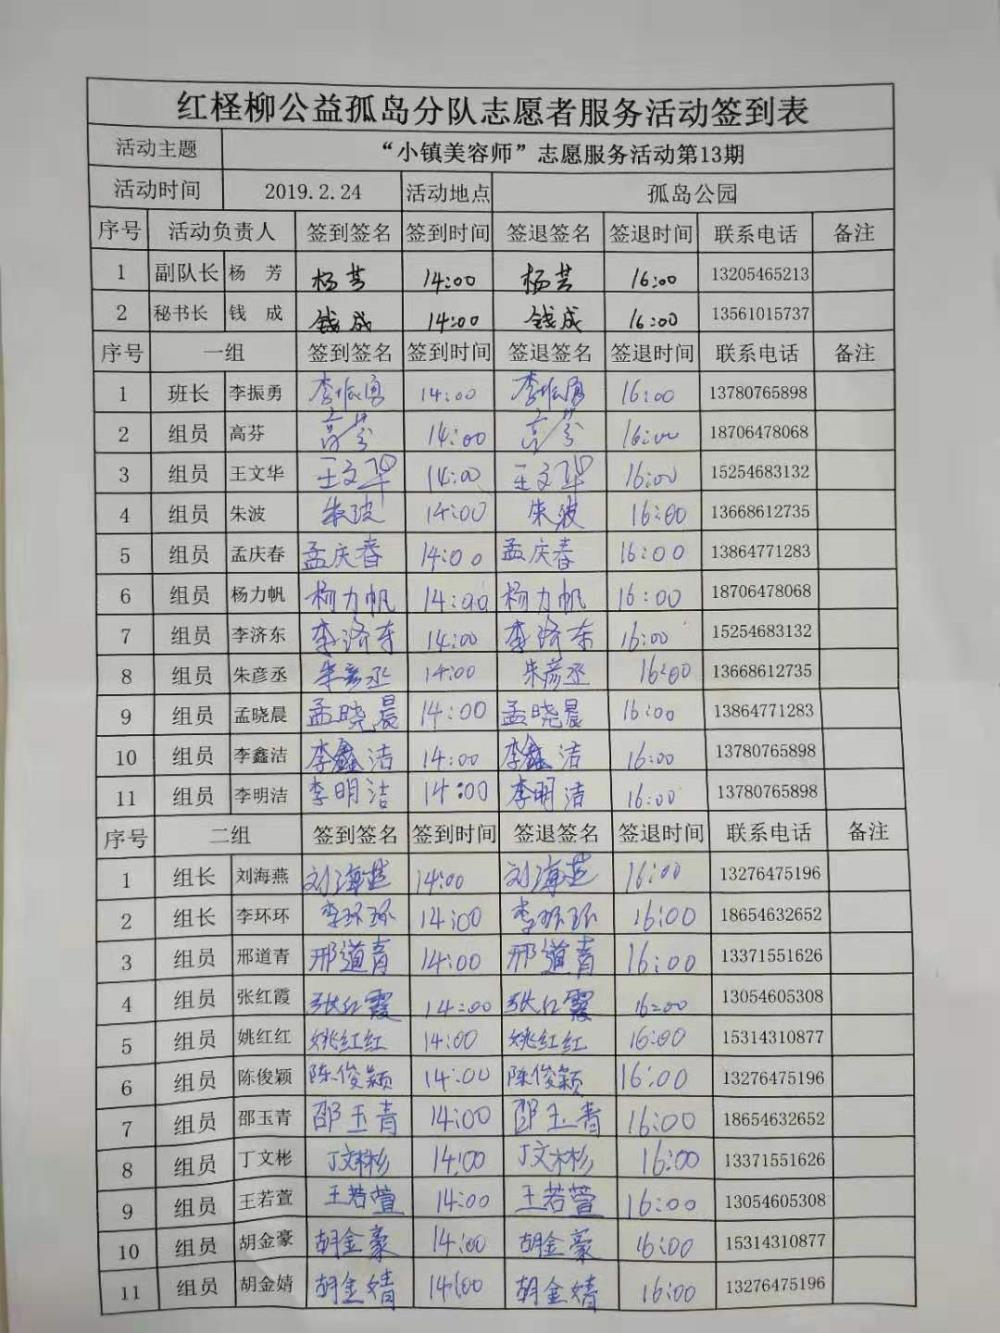 红柽柳公益孤岛分队志愿者服务活动签到表
活动主题 “小镇美容师”志愿服务活动第13期
活动时间 2019.2.24 活动地点 孤岛公园
序号 活动负责人 签到签名 签到时间 签退签名 签退时间 联系电话 备注
1 副队长 杨 芳 杨芸 14:00 杨芸 16:00 13205465213
2 秘书长 钱 成 钱成 14:00 钱成 16:00 13561015737
序号 一组 签到签名 签到时间 签退签名 签退时间 联系电话 备注
1 班长 李振勇 李振勇 14:00 李振勇 16:00 13780765898
2 组员 高芬 高芬 14:00 高芬 16:00 18706478068
3 组员 王文华 王文华 14:00 王文华 16:00 15254683132
4 组员 朱波 朱波 14:00 朱波 16:00 13668612735
5 组员 孟庆春 孟庆春 14:00 孟庆春 16:00 13864771283
6 组员 杨力帆 杨力帆 14:00 杨力帆 16:00 18706478068
7 组员 李济东 李济东 14:00 李济东 16:00 15254683132
8 组员 朱彦丞 朱彦丞 14:00 朱彦丞 16:00 13668612735
9 组员 孟晓晨 孟晓晨 14:00 孟晓晨 16:00 13864771283
10 组员 李鑫洁 李鑫洁 14:00 李鑫洁 16:00 13780765898
11 组员 李明洁 李明洁 14:00 李明洁 16:00 13780765898
序号 二组 签到签名 签到时间 签退签名 签退时间 联系电话 备注
1 组长 刘海燕 刘海燕 14:00 刘海燕 16:00 13276475196
2 组长 李环环 李环环 14:00 李环环 16:00 18654632652
3 组员 邢道青 邢道青 14:00 邢道青 16:00 13371551626
4 组员 张红霞 张红霞 14:00 张红霞 16:00 13054605308
5 组员 姚红红 姚红红 14:00 姚红红 16:00 15314310877
6 组员 陈俊颖 陈俊颖 14:00 陈俊颖 16:00 13276475196
7 组员 邵玉青 邵玉青 14:00 邵玉青 16:00 18654632652
8 组员 丁文彬 丁文彬 14:00 丁文彬 16:00 13371551626
9 组员 王若萱 王若萱 14:00 王若萱 16:00 13054605308
10 组员 胡金豪 胡金豪 14:00 胡金豪 16:00 15314310877
11 组员 胡金婧 胡金婧 14:00 胡金婧 16:00 13276475196